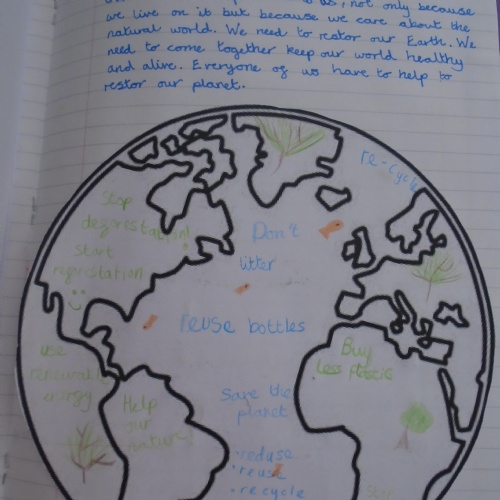 is, not only because
we live on it but because we care about the
natural world. We need to restor our Earth. We
need to come together keep our world healthy
and alive. Everyone of us have to help to
restor our planet.
re-cycle
Stop
deforestation!
Don't
litter
start
regrestation!
reuse bottles
Buy
less plastic
use
renewable
energy
Save the
planet
Help
our
nature!
• reduse
• reuse
• recycle